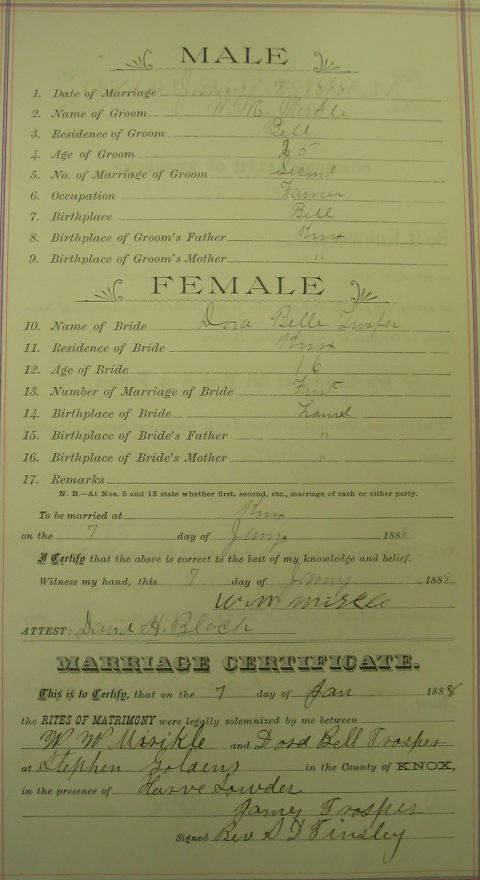 MALE
1. Date of Marriage 7 1888
2. Name of Groom W. M. Mirkle
3. Residence of Groom Bell
4. Age of Groom 25
5. No. of Marriage of Groom Second
6. Occupation Farmer
7. Birthplace Bell
8. Birthplace of Groom's Father Knox
9. Birthplace of Groom's Mother "
FEMALE
10. Name of Bride Dora Belle Trosper
11. Residence of Bride Knox
12. Age of Bride 16
13. Number of Marriage of Bride First
14. Birthplace of Bride Laurel
15. Birthplace of Bride's Father "
16. Birthplace of Bride's Mother "
17. Remarks
N. B.—At Nos. 5 and 13 state whether first, second, etc., marriage of each or either party.
To be married at Knox
on the 7 day of Jany 1888
I Certify that the above is correct to the best of my knowledge and belief.
Witness my hand, this 7 day of Jany 1888
W M Mirkle
ATTEST: David H. Black
MARRIAGE CERTIFICATE.
This is to Certify, that on the 7 day of Jan 1888
the RITES OF MATRIMONY were legally solemnized by me between
W W Mirikle and Dora Bell Trosper
at Stephen Goldens in the County of KNOX,
in the presence of Harve Lowder
Trosper
Signed Rev S T Tinsley